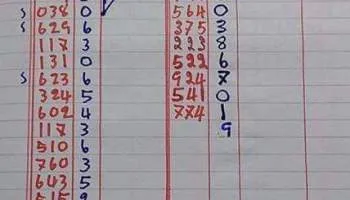 s 038 0
s 629 6
117 3
131 0
s 623 6
324 5
602 4
117 3
510 6
760 3
643 5
564 0
375 3
223 8
522 6
924 7
541 0
774 1
9